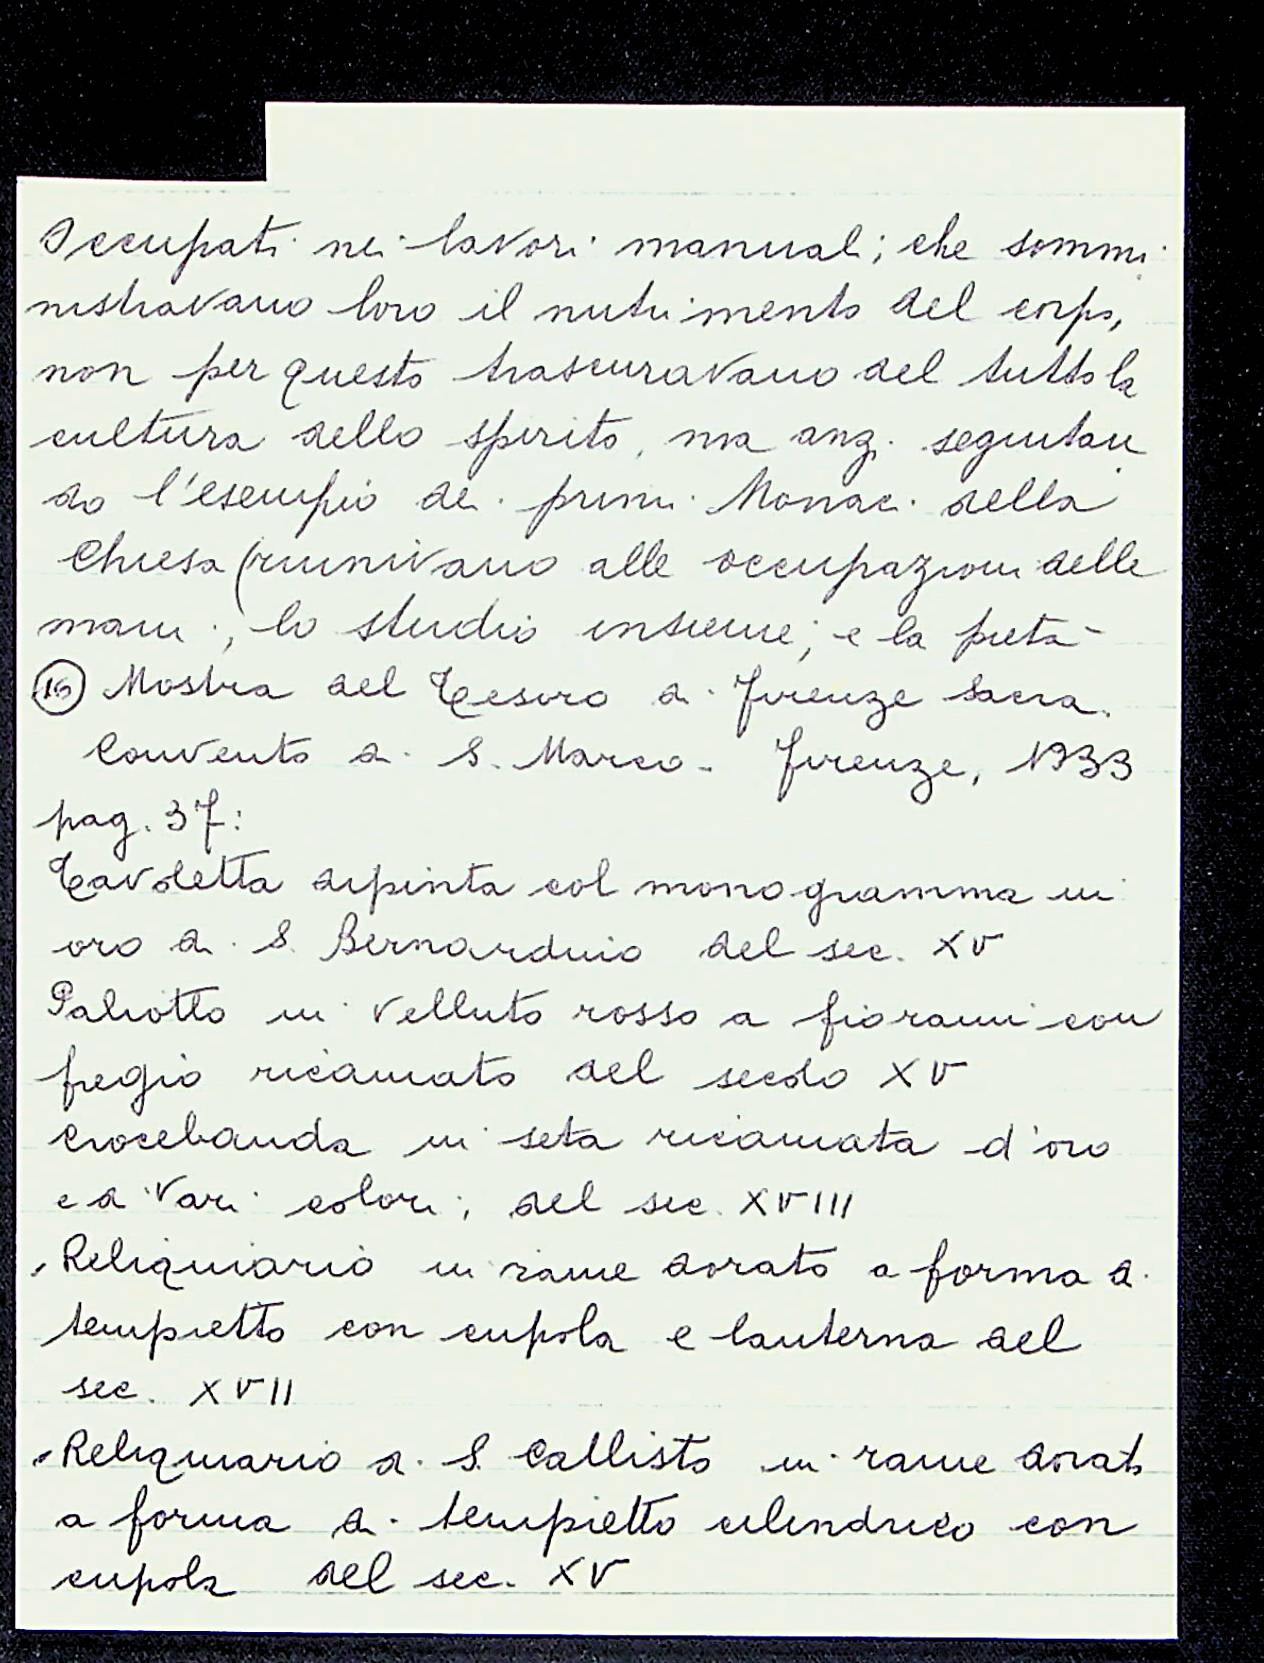 Occupati nei lavori manuali, che sommi
nistravano loro il nutrimento del corpo,
non per questo trascuravano del tutto la
cultura dello spirito, ma anzi seguitan
do l'esempio dei primi Monaci della
Chiesa (riunivano alle occupazioni delle
mani, lo studio insieme, e la pietà -
(16) Mostra del Tesoro di Firenze Sacra.
Convento di S. Marco - Firenze, 1933
pag. 37:
Tavoletta dipinta col monogramma in
oro di S. Bernardino del sec. XV
Paliotto in velluto rosso a fiorami con
fregio ricamato del secolo XV
Crocebanda in seta ricamata d'oro
e di vari colori, del sec. XVIII
, Reliquiario in rame dorato a forma di
tempietto con cupola e lanterna del
sec. XVII
, Reliquiario di S. Callisto in rame dorato
a forma di tempietto cilindrico con
cupola del sec. XV